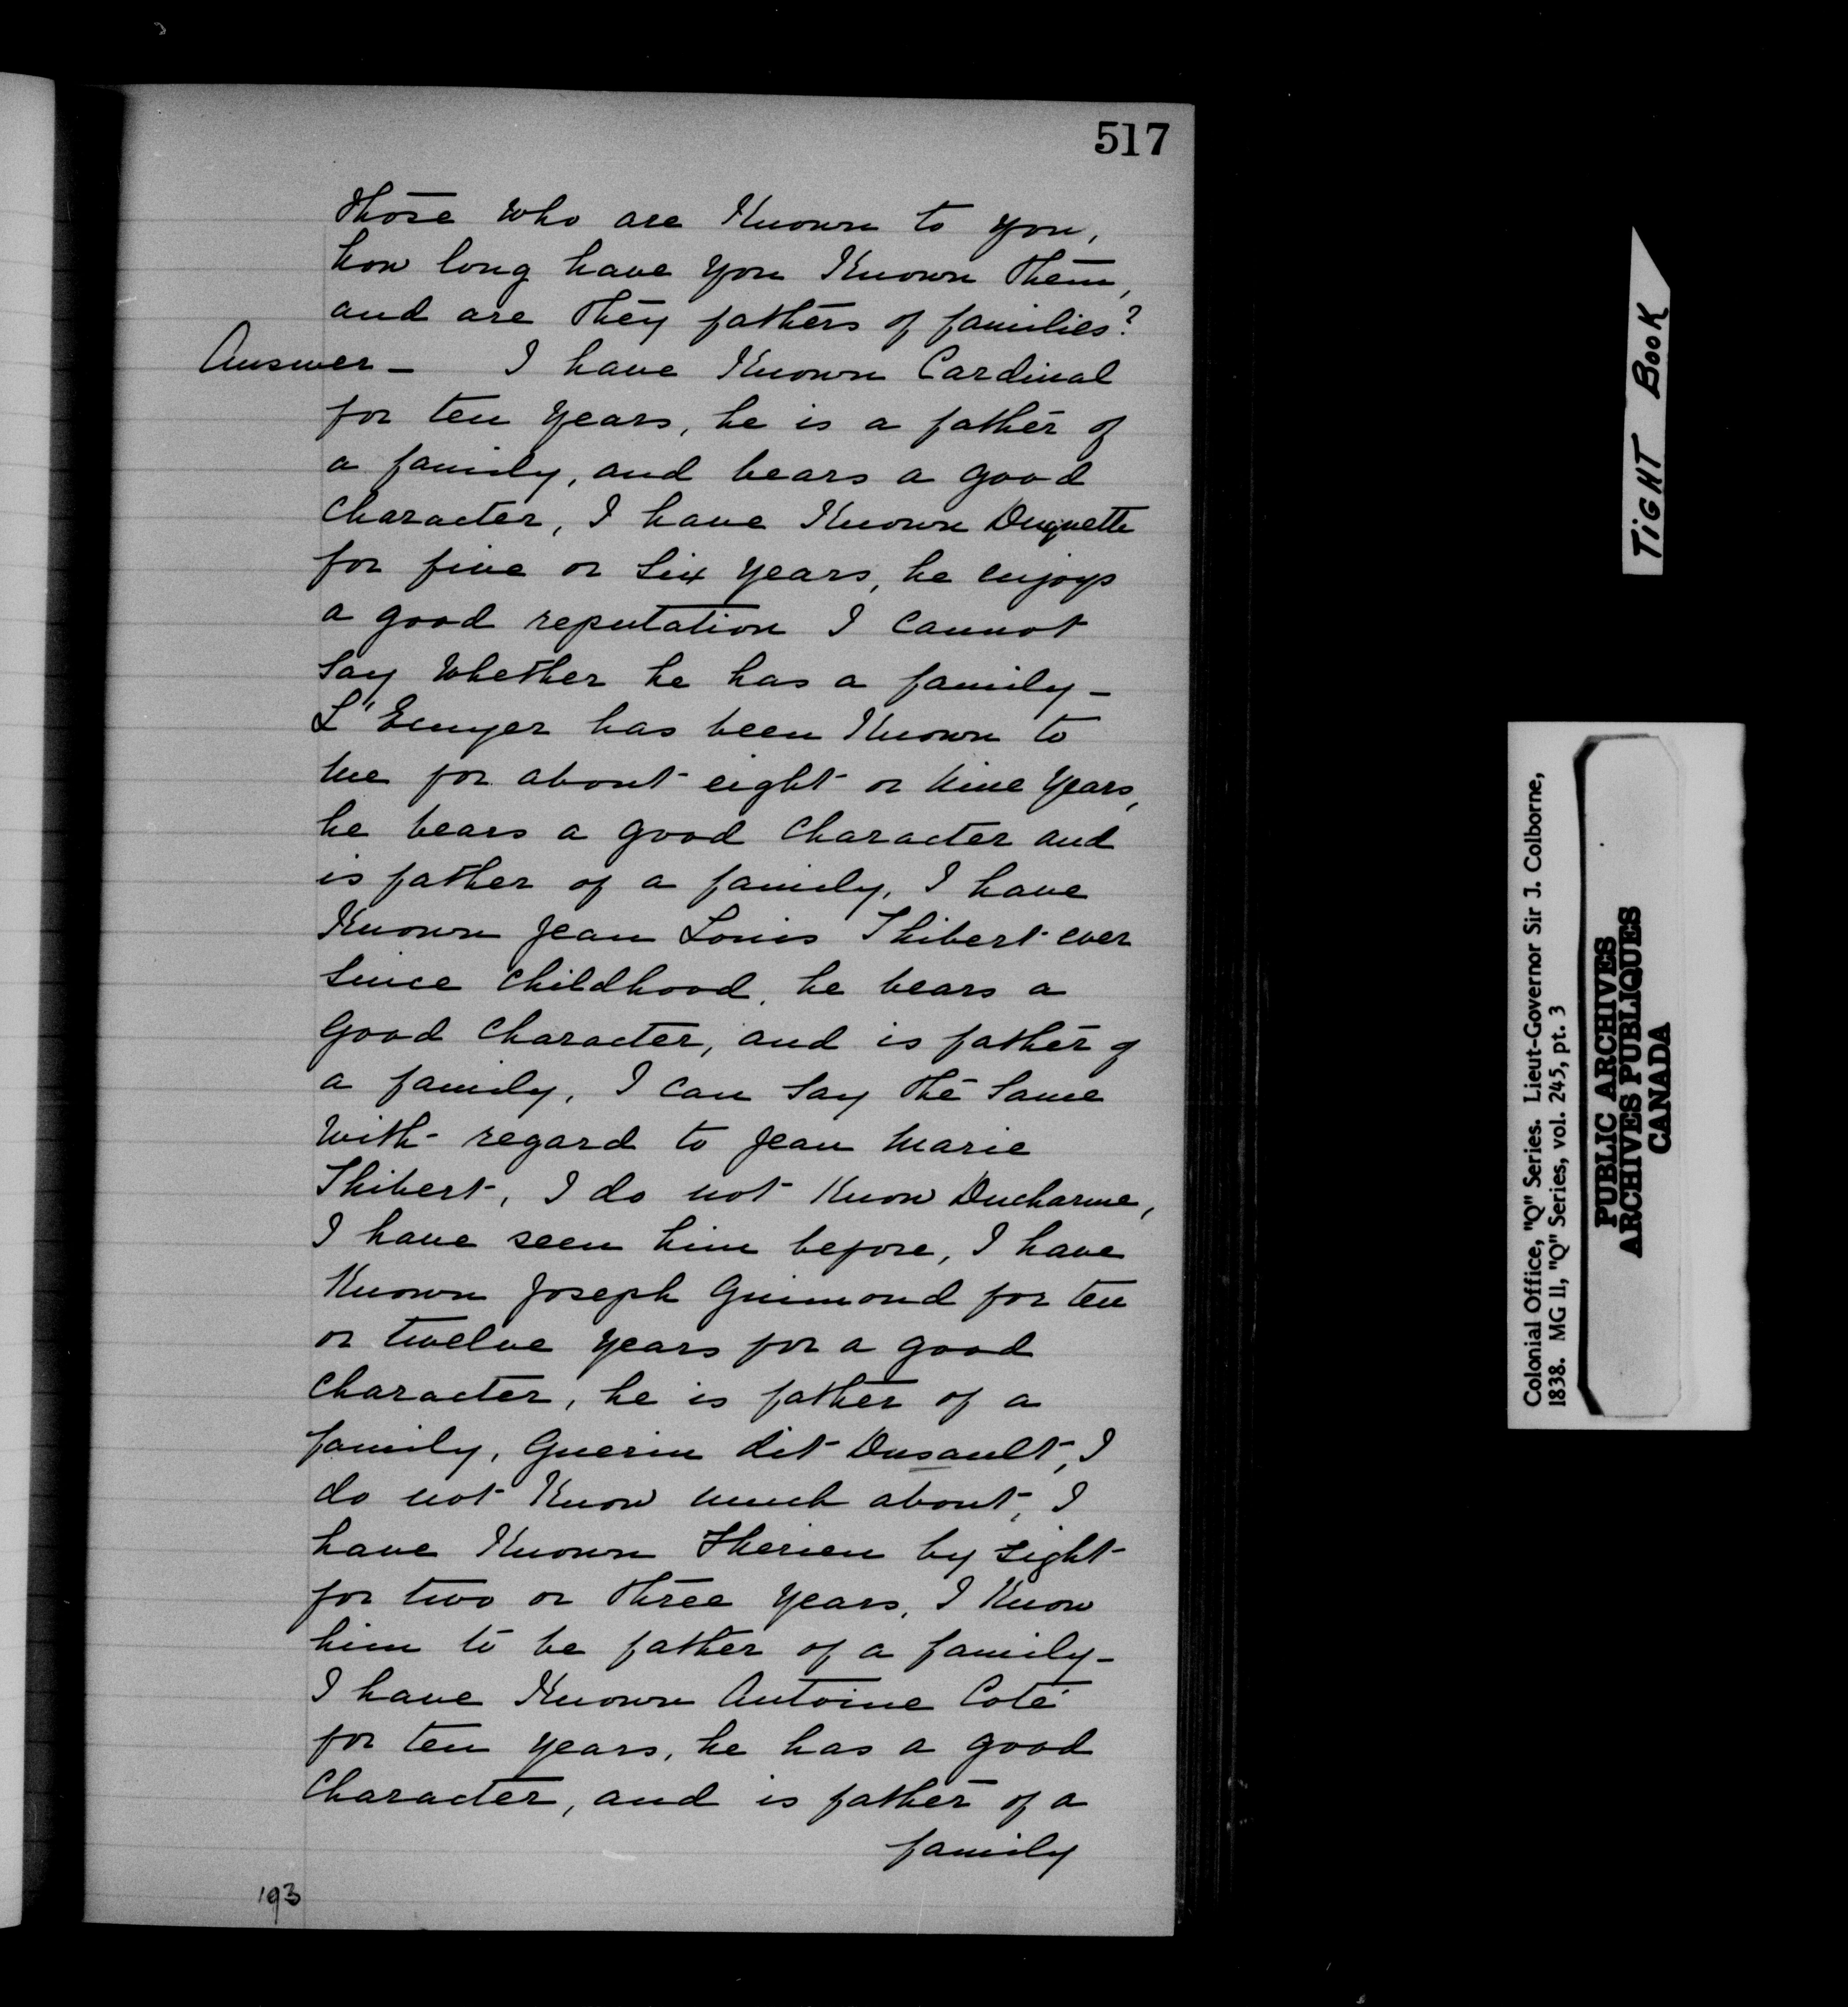 517
those who are Known to you,
how long have you Known them,
and are they fathers of families?
Answer – I have Known Cardinal
for ten years, he is a father of
a family, and bears a good
character, I have Known Duquette
for five or six years, he enjoys
a good reputation I cannot
say whether he has a family –
L'Ecuyer has been Known to
me for about eight or nine years,
he bears a good character and
is father of a family, I have
Known Jean Louis Thibert ever
since childhood, he bears a
good character, and is father of
a family, I can say the same
with regard to Jean Marie
Thibert, I do not Know Ducharme,
I have seen him before, I have
Known Joseph Guimond for ten
or twelve years for a good
character, he is father of a
family, Guerin dit Dusault, I
do not Know much about, I
have Known Therien by sight
for two or three years, I Know
him to be father of a family –
I have Known Antoine Coté
for ten years, he has a good
character, and is father of a
family
193
TIGHT BOOK
Colonial Office, "Q" Series. Lieut-Governor Sir J. Colborne,
1838. MG 11, "Q" Series, vol. 245, pt. 3
PUBLIC ARCHIVES
ARCHIVES PUBLIQUES
CANADA